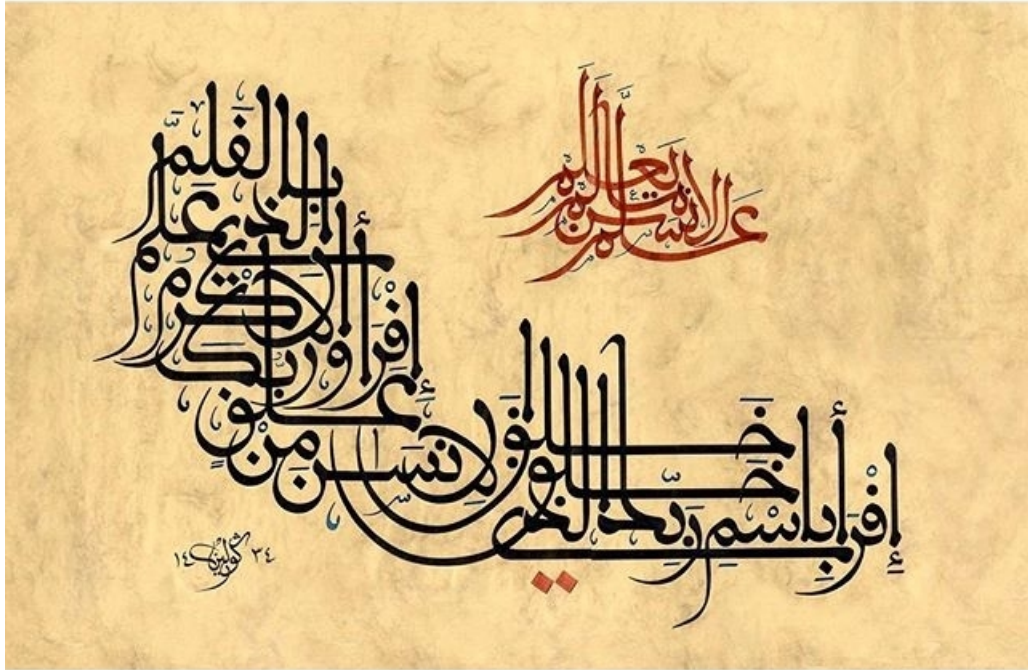 إِقْرَأْ بِاسْمِ رَبِّكَ الَّذِي خَلَقَ خَلَقَ الانسن مِنْ عَلَقٍ
إِقْرَأْ وَرَبُّكَ الأَكْرَمُ الَّذِي عَلَّمَ بِالْقَلَمِ
عَلَّمَ الانسن مَا لَمْ يَعْلَمْ
١٤٣٤